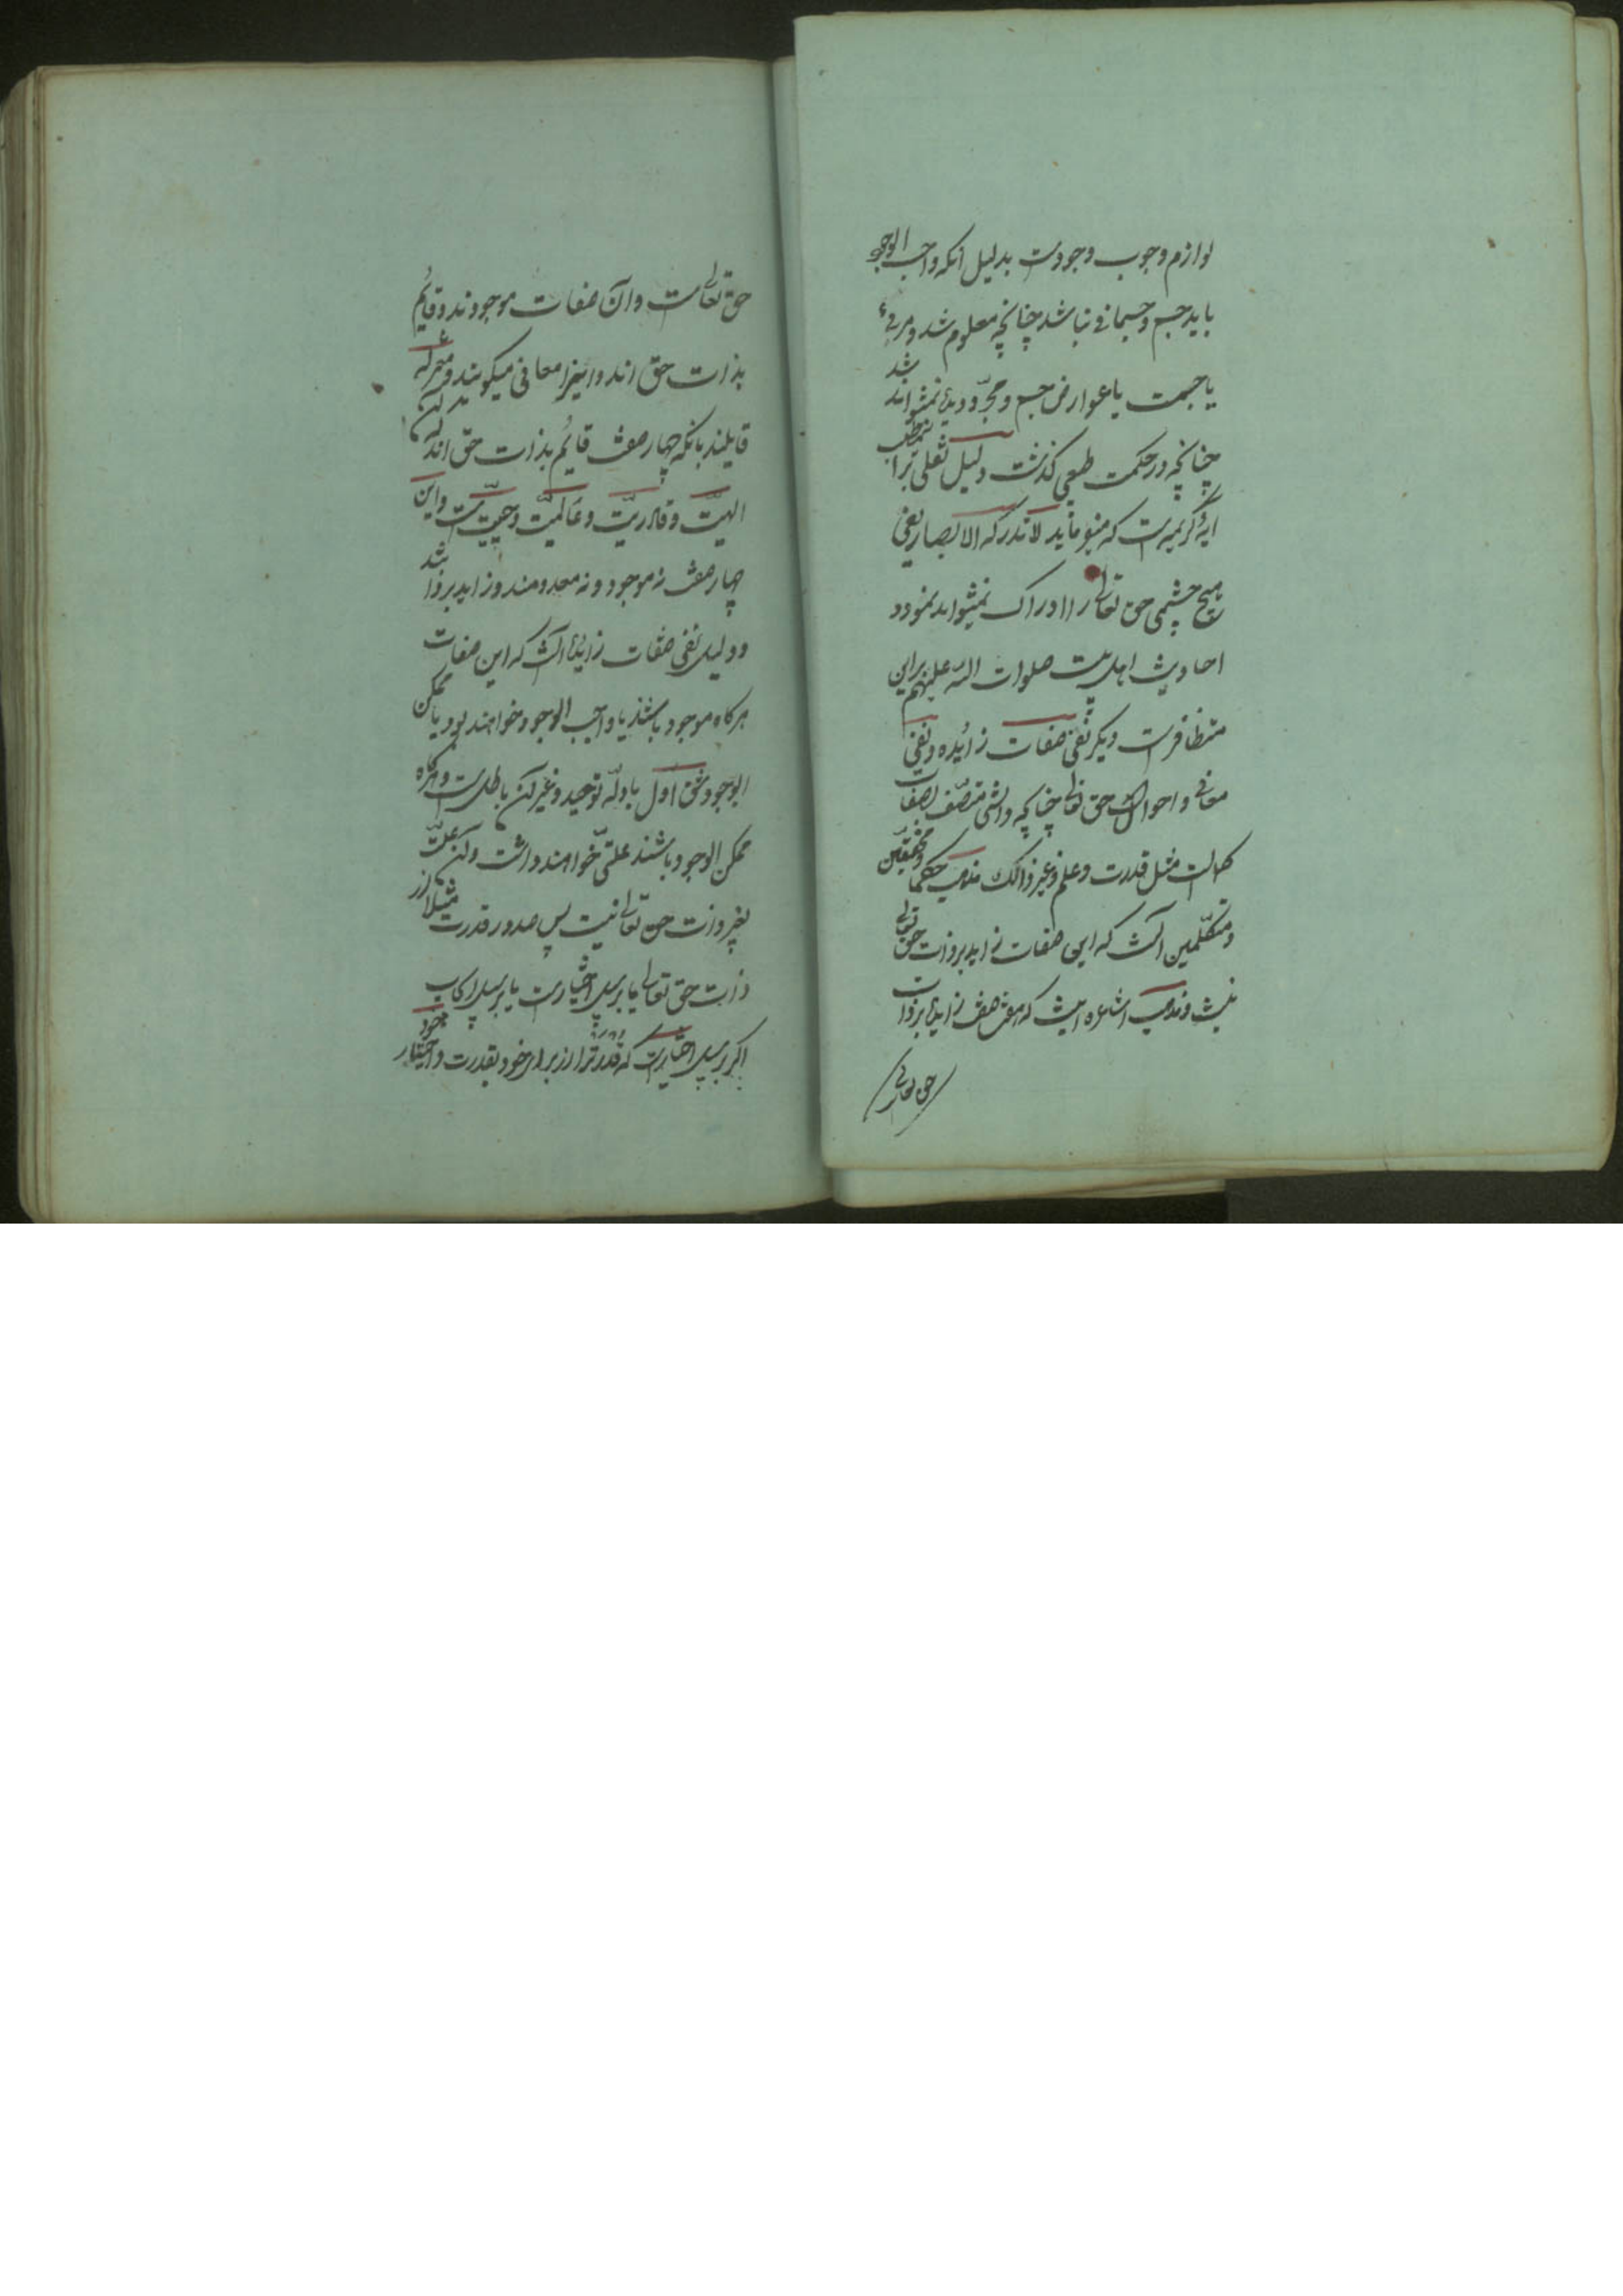 لوازم وجوب وجودست بدلیل انکه واجب الوجو
باید جسم و جسمانی نباشد چنانچه معلوم شد و مرئی
یا جسمست یا عوارض جسم و مجرّد دیده نمیتواند شد
چنانچه در حکمت طبیعی گذشت و دلیل نقلی برا مطلب
ایهٔ کریمه است که میفرماید لا تدرکه الابصار یعنی
هیچ چشمی حق تعالی را ادراک نمیتواند نمود و
احادیث اهل بیت صلوات الله علیهم براین
متظافرست دیگر نفی صفات زایده و نفی
معانی و احوال است حق تعالی چنانچه دانستی متصّف بصفات
کمالست مثل قدرت و علم و غیر ذالک مذهب حکما و محققین
و متکلّمین انست که این صفات زاید بر ذات حق تعالی
نیست و مذهب اشاعره اینست که هفت صفت زایده بر ذات
حق تعالی
حق تعالی است و آن صفات موجودند و قایم
بذات حق اند و انها را معانی میگویند و معتزله
قایلند بانکه چهار صفت قایم بذات حق اند که آن
الهیّت و قادریّت و عالمیّت و حییّت است و این
چهار صفت نه موجود و نه معدومند و زاید بر ذا شد
و دلیل نفی صفات زایده انست که این صفات
هرکاه موجود باشند یا واجب الوجود خواهند بود یا ممکن
الوجود شق اول بادلّه توحید و غیر آن باطل است و هرگاه
ممکن الوجود باشند علّتی خواهند داشت و آن علّت
بغیر ذات حق تعالی نیست پس صدور قدرت مثلا از
ذات حق تعالی یا بر سبیل اختیارست یا بر سبیل ایجاب
اکر بر سبیل اختیارست که قدرت را از برای خود بقدرت و اختیار خود